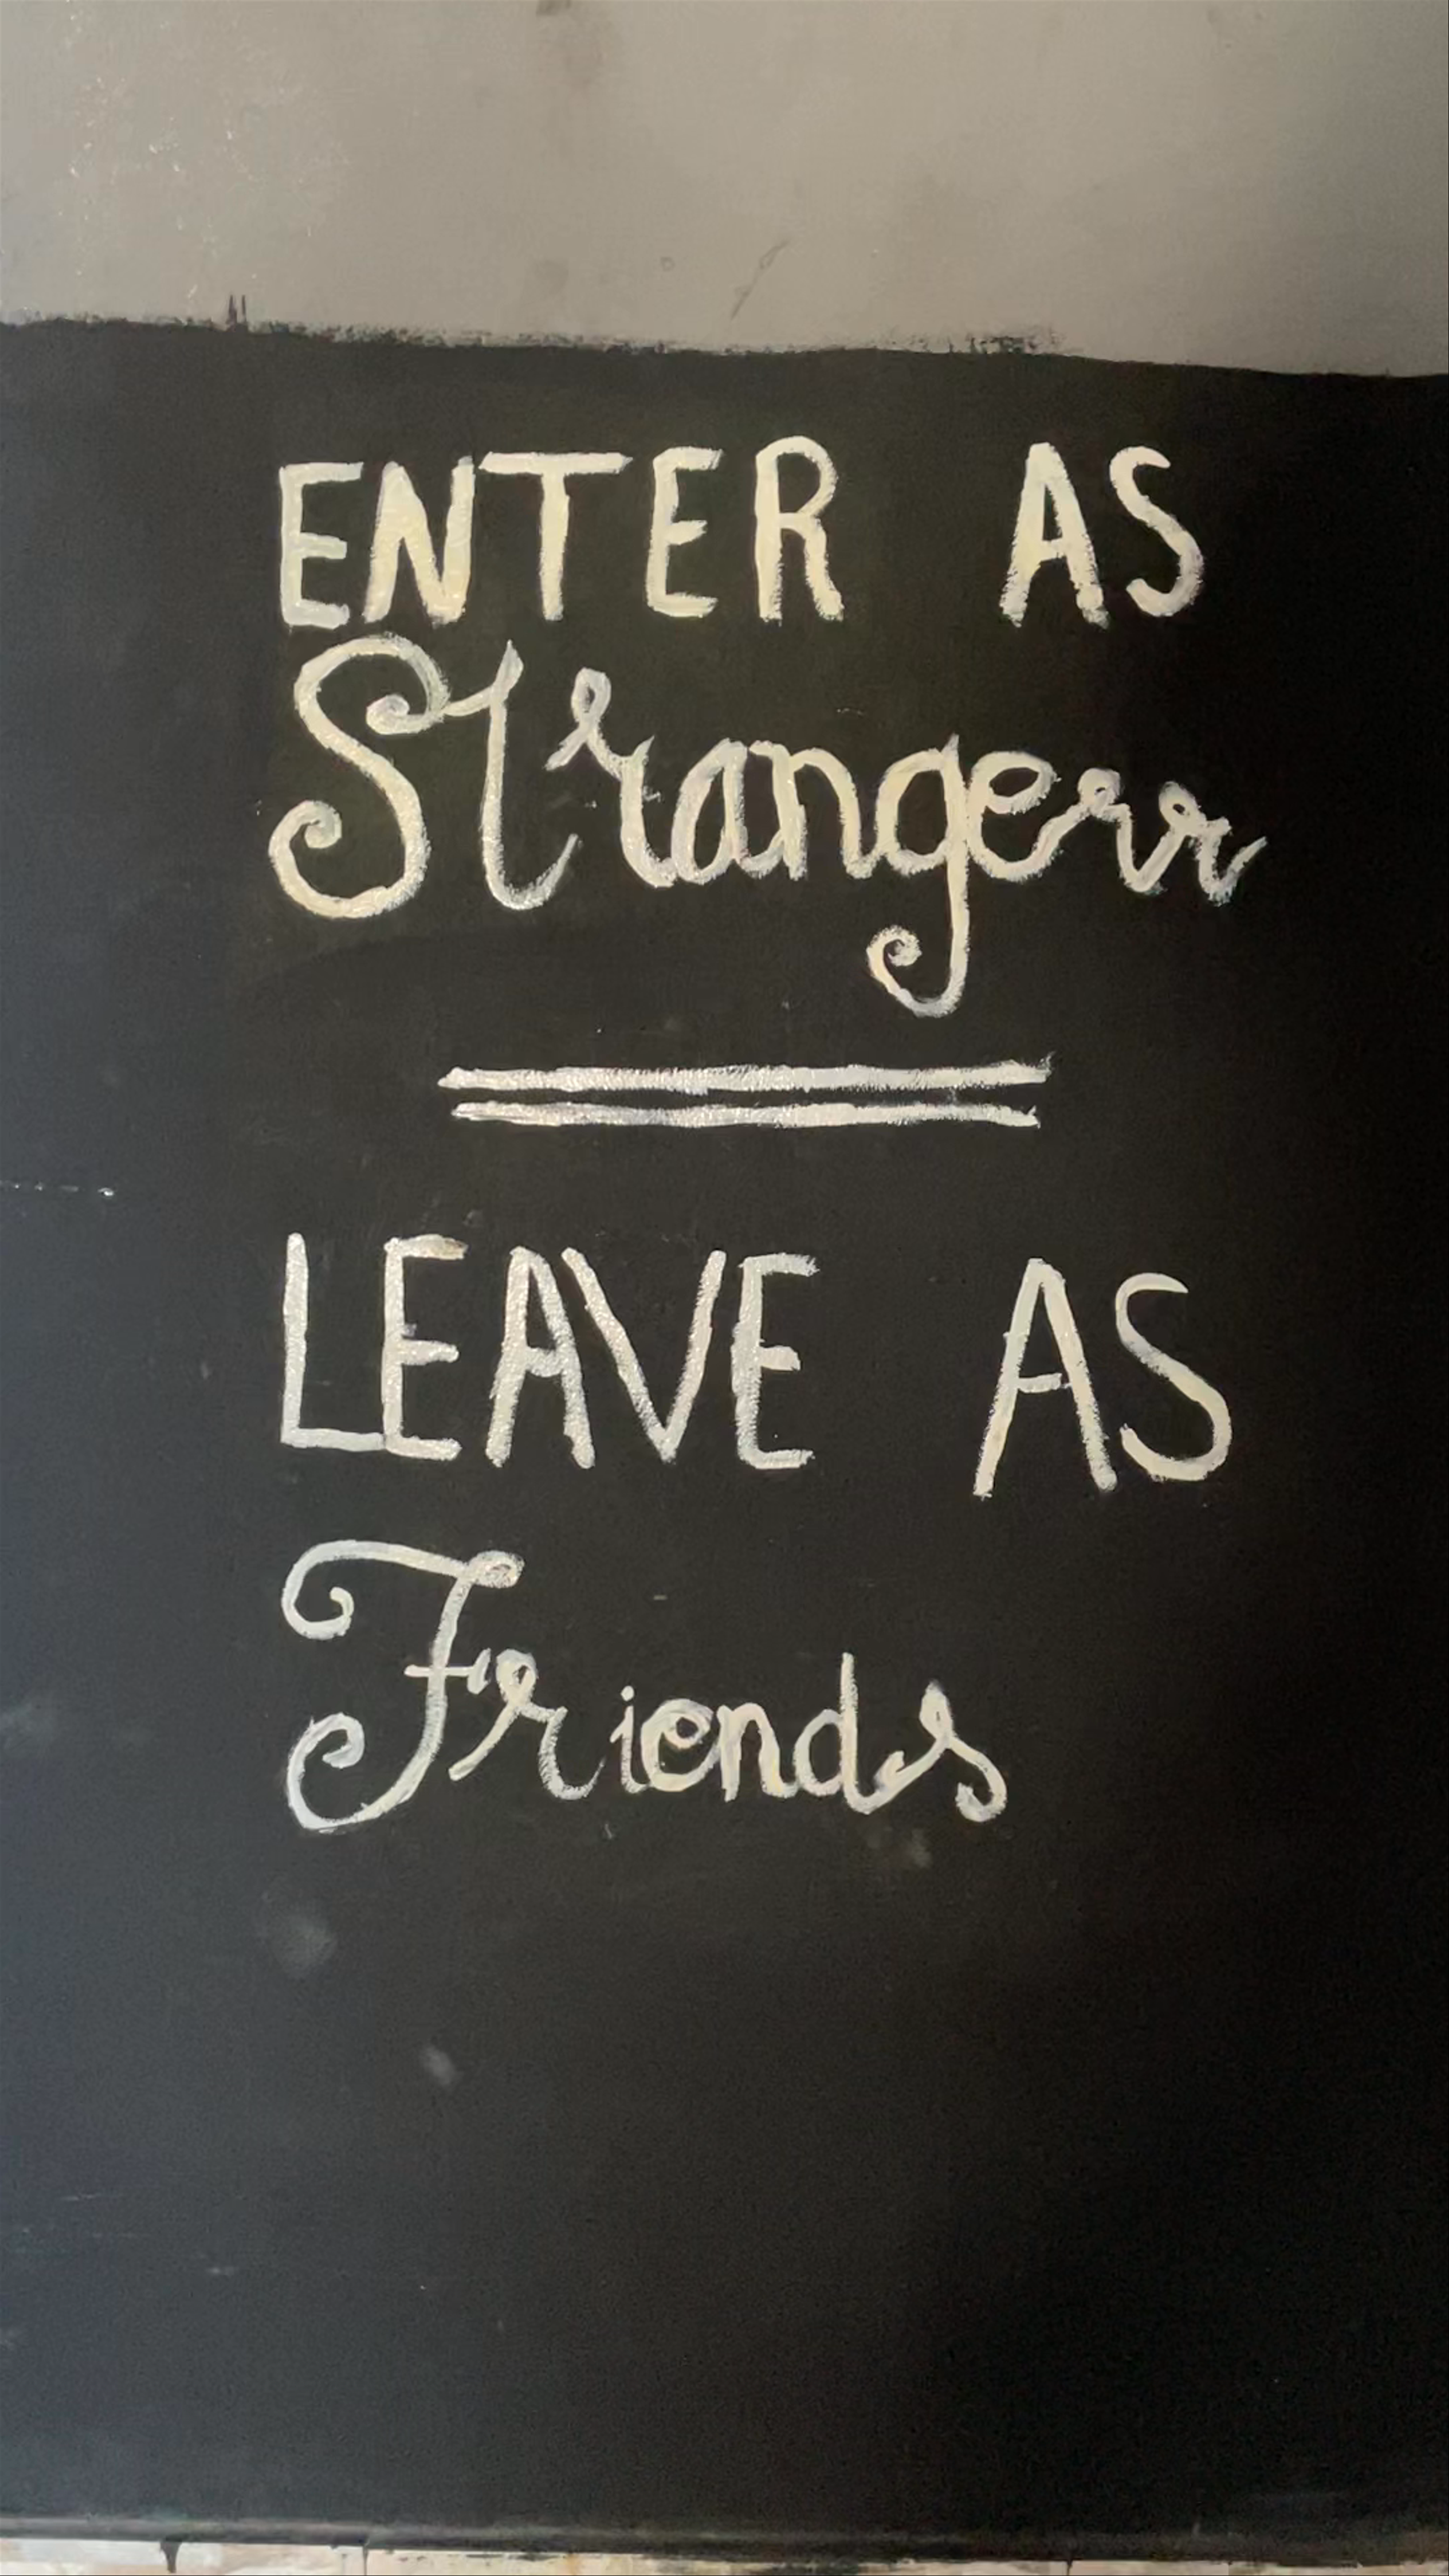 ENTER AS
Strangerr
LEAVE AS
Friends